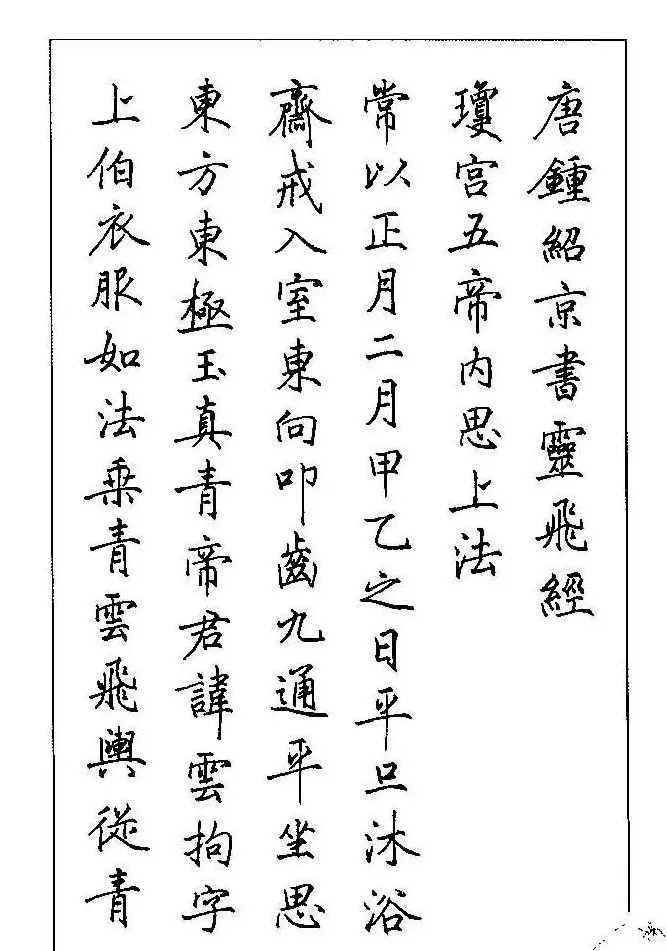 唐鍾紹京書靈飛經
瓊宮五帝內思上法
常以正月二月甲乙之日平旦沐浴
齋戒入室東向叩齒九通平坐思
東方東極玉真青帝君諱雲拘字
上伯衣服如法乘青雲飛輿從青